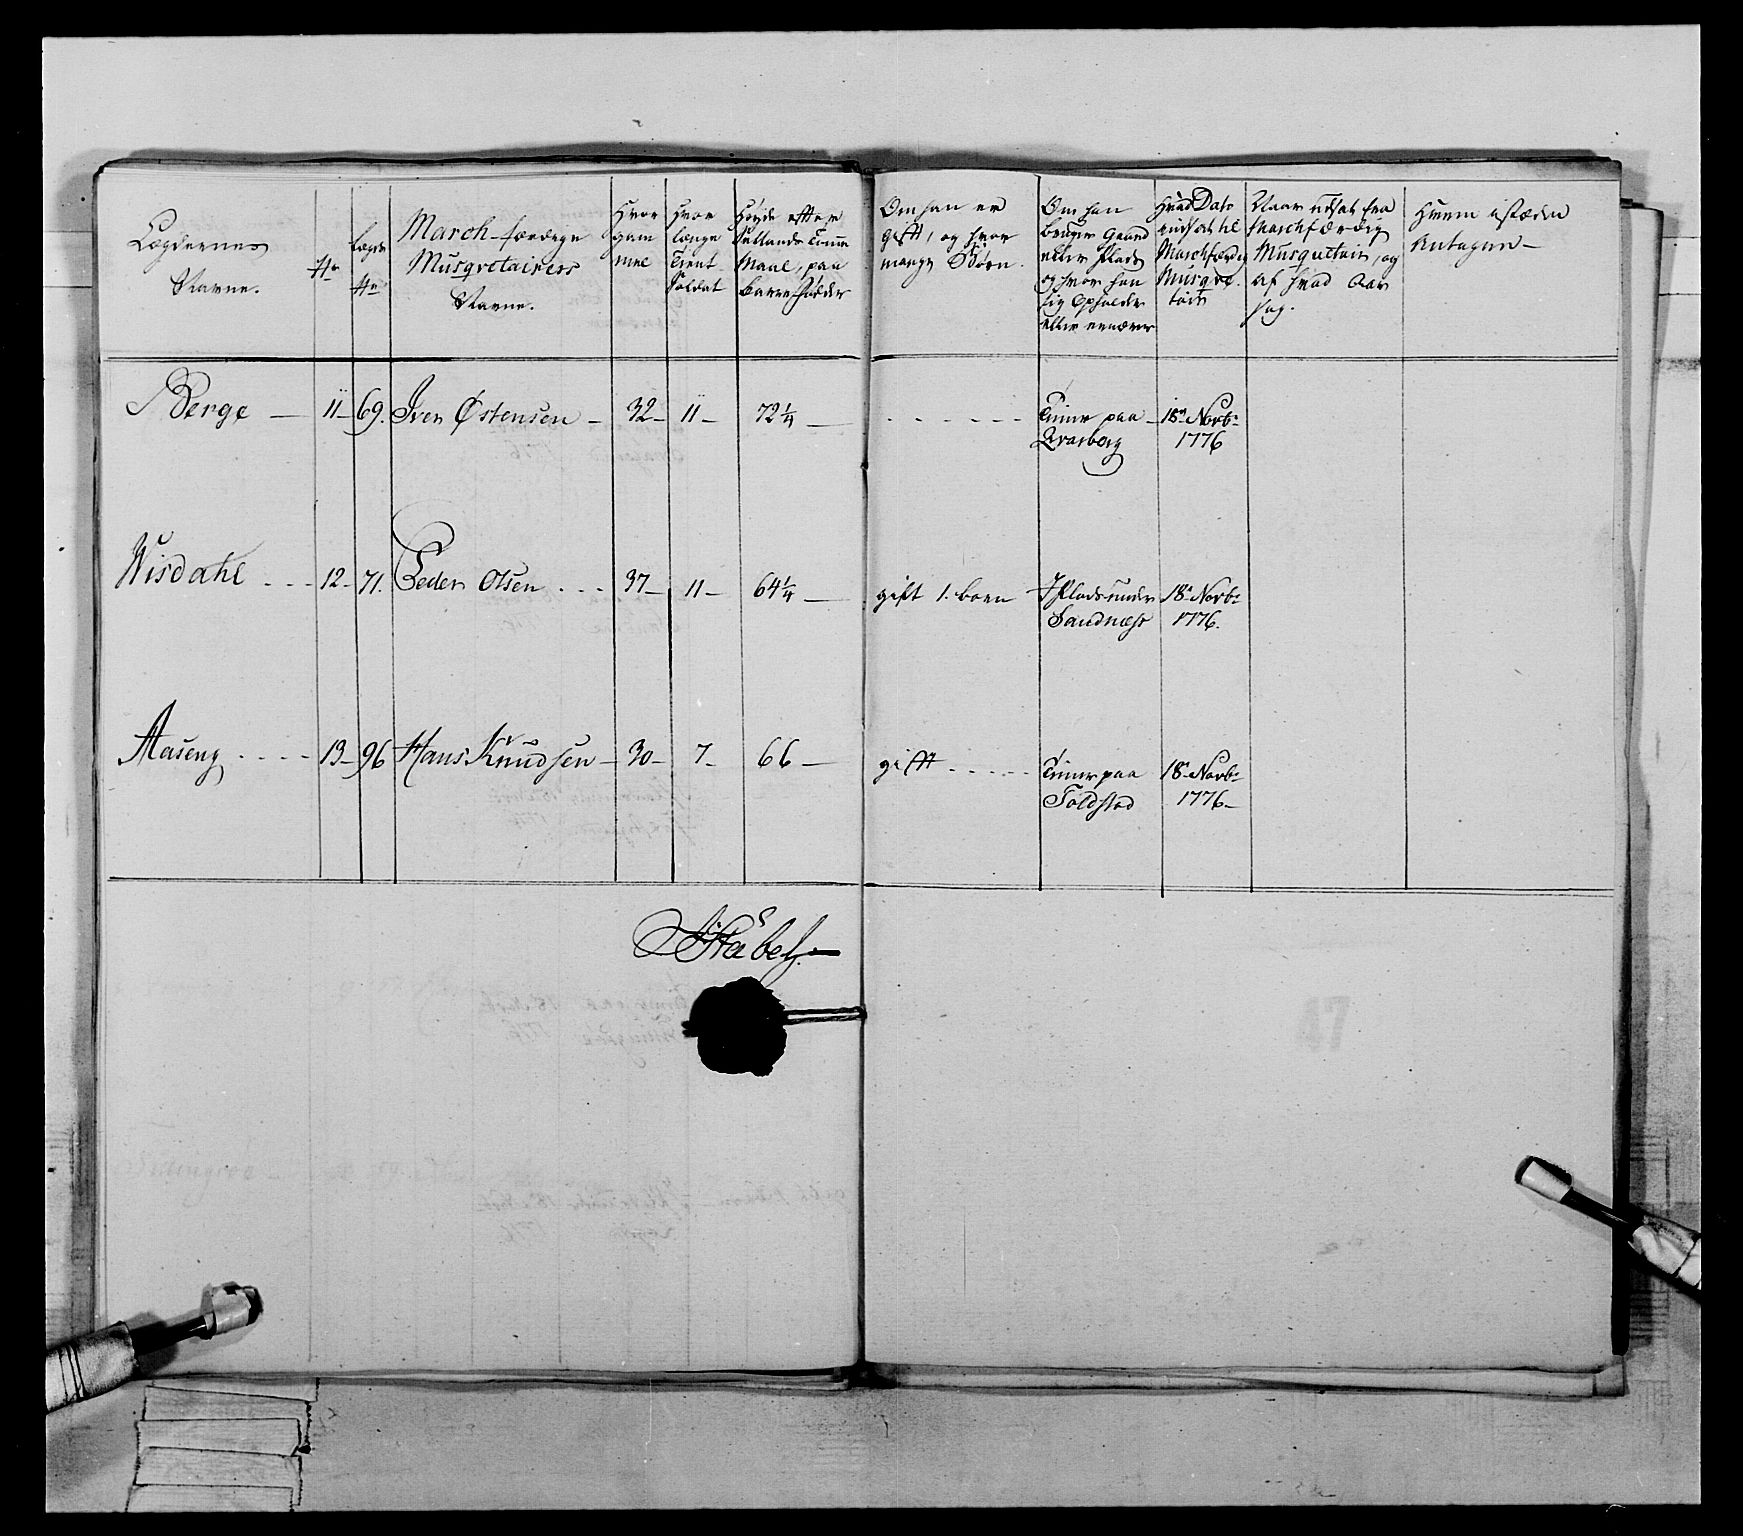 Lægdernes
Navne.
No
Lægds
No
March-færdige
Musqvetairers
Navne.
Hvor
gam
mel
Hvor
længe
Tient
Soldat
Høyde efter
Sællands Tomme
Maal, paa
barre Fødder
Om han er
gift, og hvor
mange Børn.
Om han
bruger Gaard
eller Plads
og hvor han
sig Opholder
eller ernærer
Hvad Dato
indsat til
Marchfærdig
Musqve
tair
Naar udsat fra
Marchfærdig
Musquetair, og
af hvad Aar
sag.
Hvem i stæden
Antagen
Berge — 11 — 69. Iver Østensen — 32 — 11 — 72 1/4 —
Tiener paa 18de Novbr
Qvarberg 1776
Wisdahl . . . 12 - 71. Peder Olsen . . . 37 — 11 — 64 1/4 — gift 1. barn
Plads under 18de Novbr
Sandnæss 1776.
Aaseng . . . . 13 — 96 Hans Knudsen — 30 — 7 — 66 — gift . . . . .
Tiener paa 18de Novbr
Toldstad 1776 —
Stabel
47